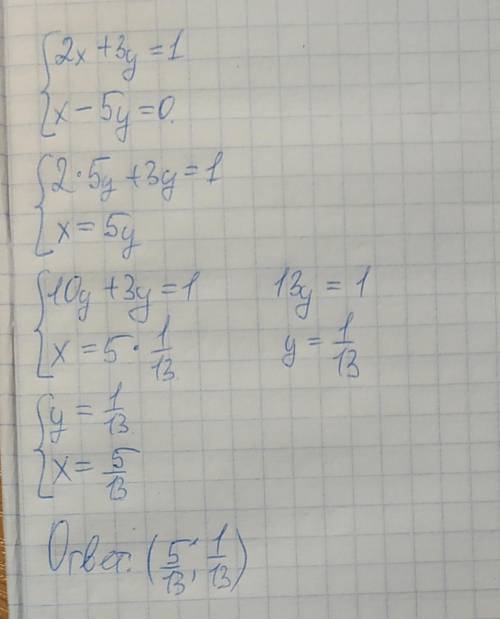 2x + 3y = 1
x - 5y = 0.
2 · 5y + 3y = 1
x = 5y
10y + 3y = 1
13y = 1
x = 5 · 1/13
y = 1/13
y = 1/13
x = 5/13
Ответ: (5/13; 1/13)